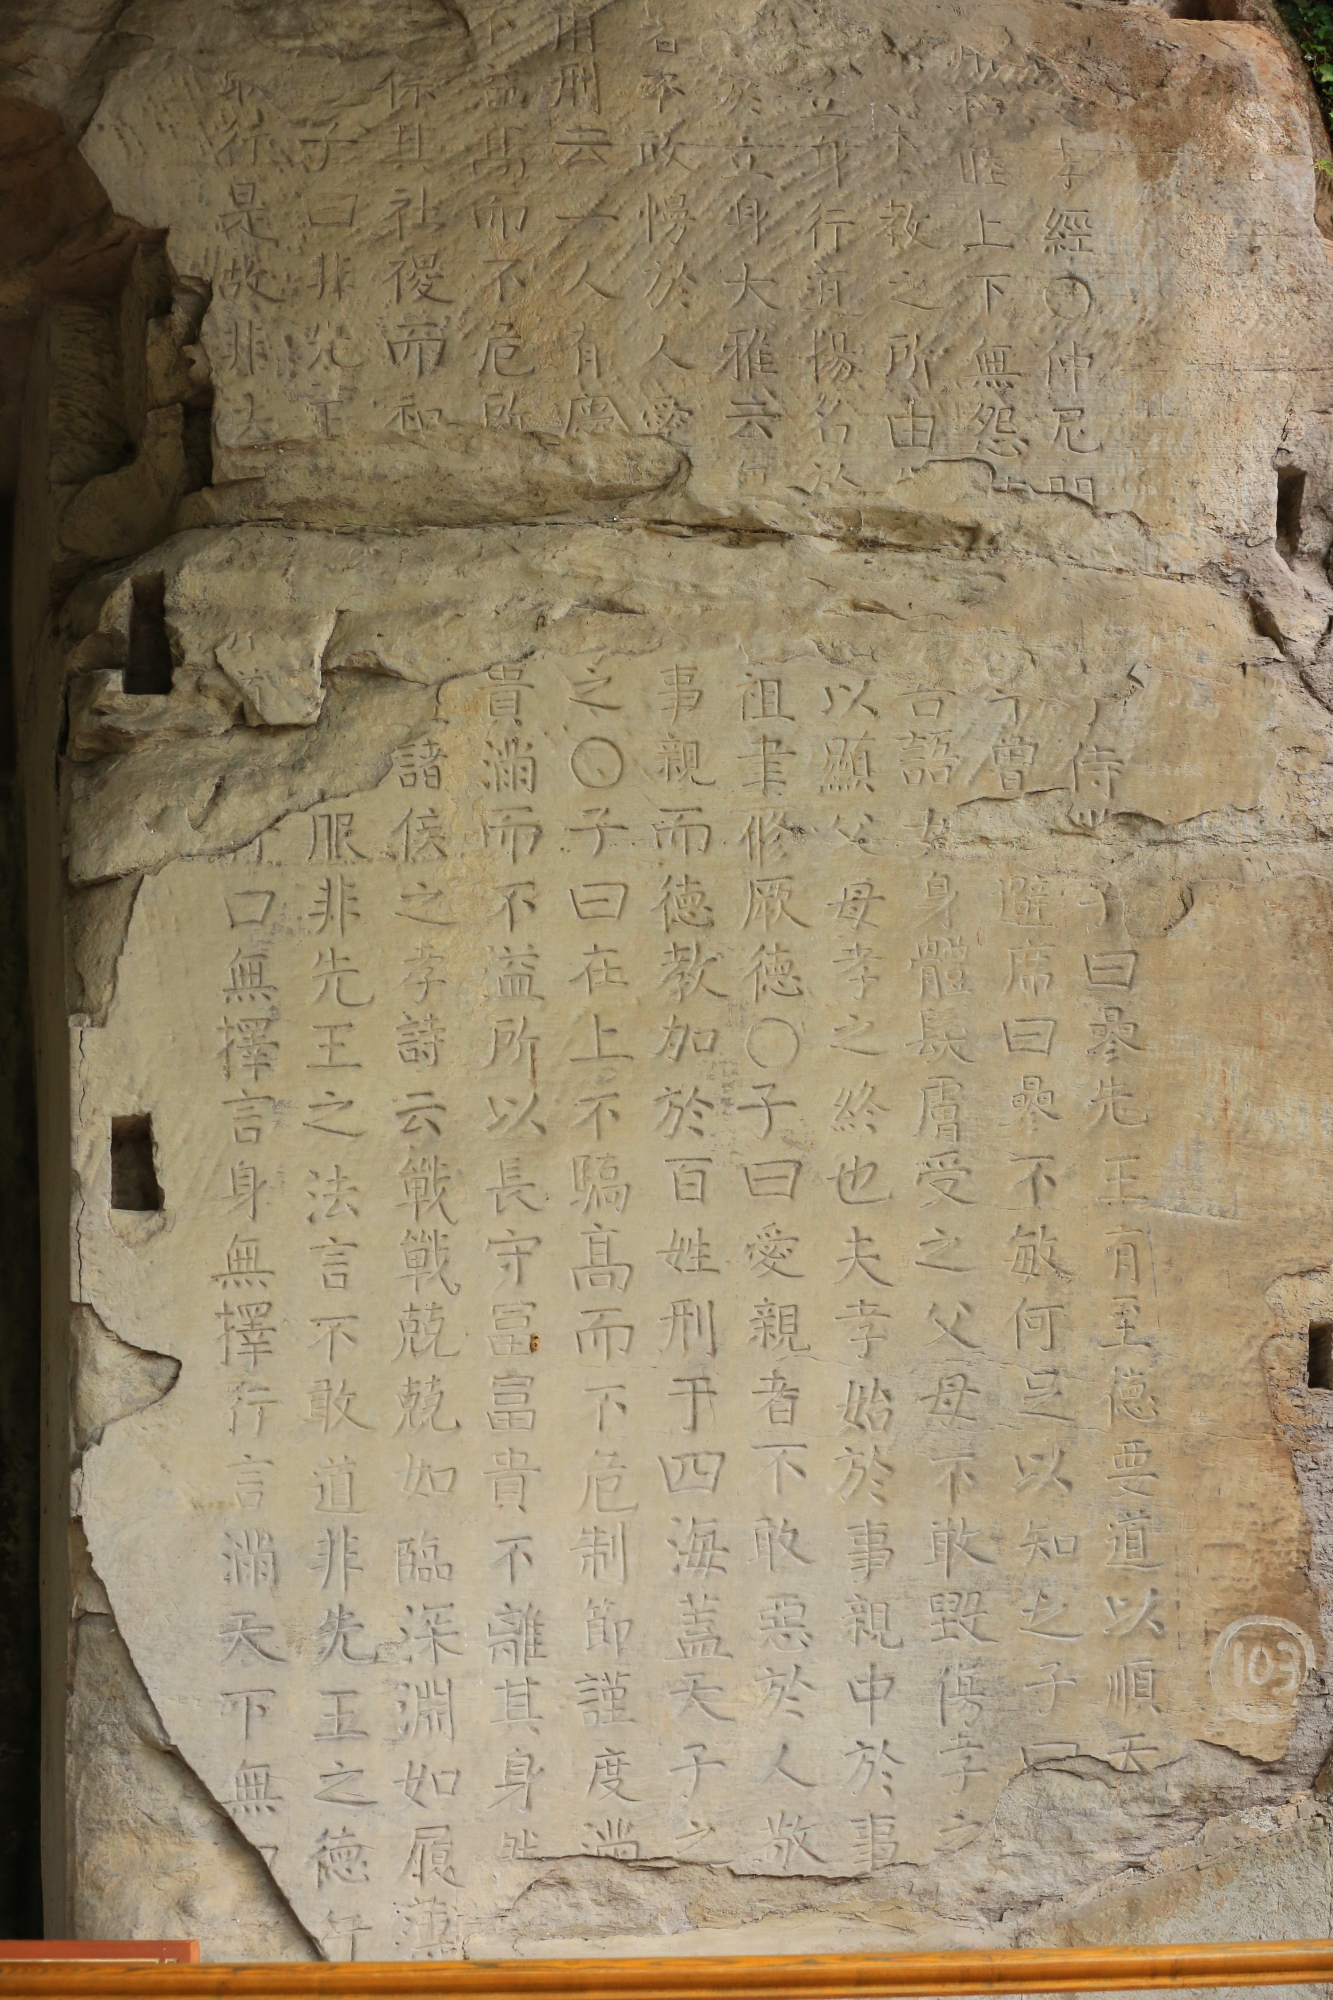 孝經〇仲尼閒侍曾子曰參先王有至德要道以順天
睦上下無怨子曾避席曰參不敏何足以知之子曰
本教之所由言語女身體髮膚受之父母不敢毀傷孝之
立身行道揚名於以顯父母孝之終也夫孝始於事親中於事
於立身大雅云祖聿脩厥德〇子曰愛親者不敢惡於人敬
者不敢慢於人愛事親而德教加於百姓刑于四海蓋天子之
甫刑云一人有慶之〇子曰在上不驕高而不危制節謹度滿
高而不危所貴滿而不溢所以長守富富貴不離其身然
保其社稷而和諸侯之孝詩云戰戰兢兢如臨深淵如履薄
子曰非先王服非先王之法言不敢道非先王之德行
敢行是故非法口無擇言身無擇行言滿天下無口
103